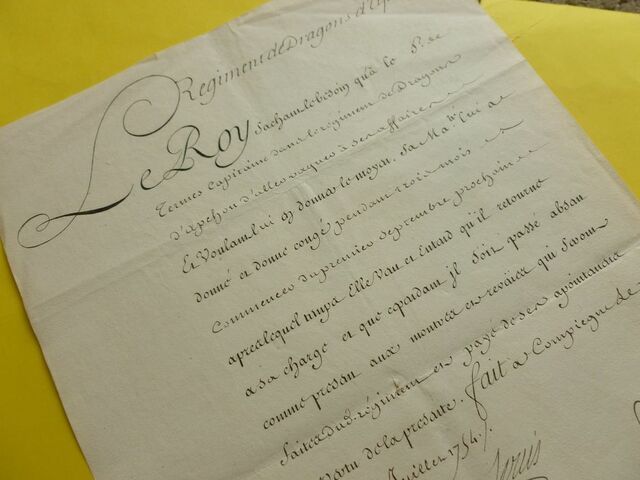 Regiment de Dragons d'Ap
Le Roy Sachant le besoin qu'a le Sr. de
Termes Capitaine dans le régiment de Dragons
d'Apchon d'aller vaquer à ses affaires
Et Voulant lui en donner le moyen. Sa Maté. lui a
donné et donne congé pendant trois mois
Commencer du premier Septembre prochain
après lequel temps Elle Veut et Entend qu'il retourne
a sa charge et que cependant jl Soit passé absent
comme present aux montres et revües qui Seront
faites dud. régiment et payé de ses apointemens
Vertu de la presente. fait a Compiegne le
Juillet 1754.
Louis